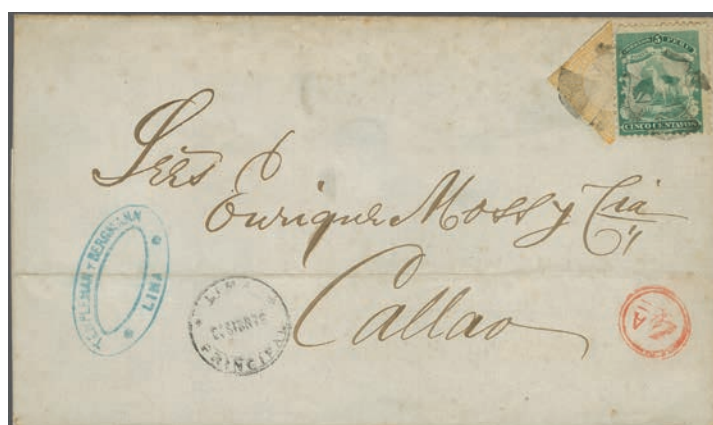 PERU
5
CINCO CENTAVOS
Sres
Enrique Moss y Cia
Callao
TEMPLEMAN Y BERGMANN
LIMA
LIMA
PRINCIPAL